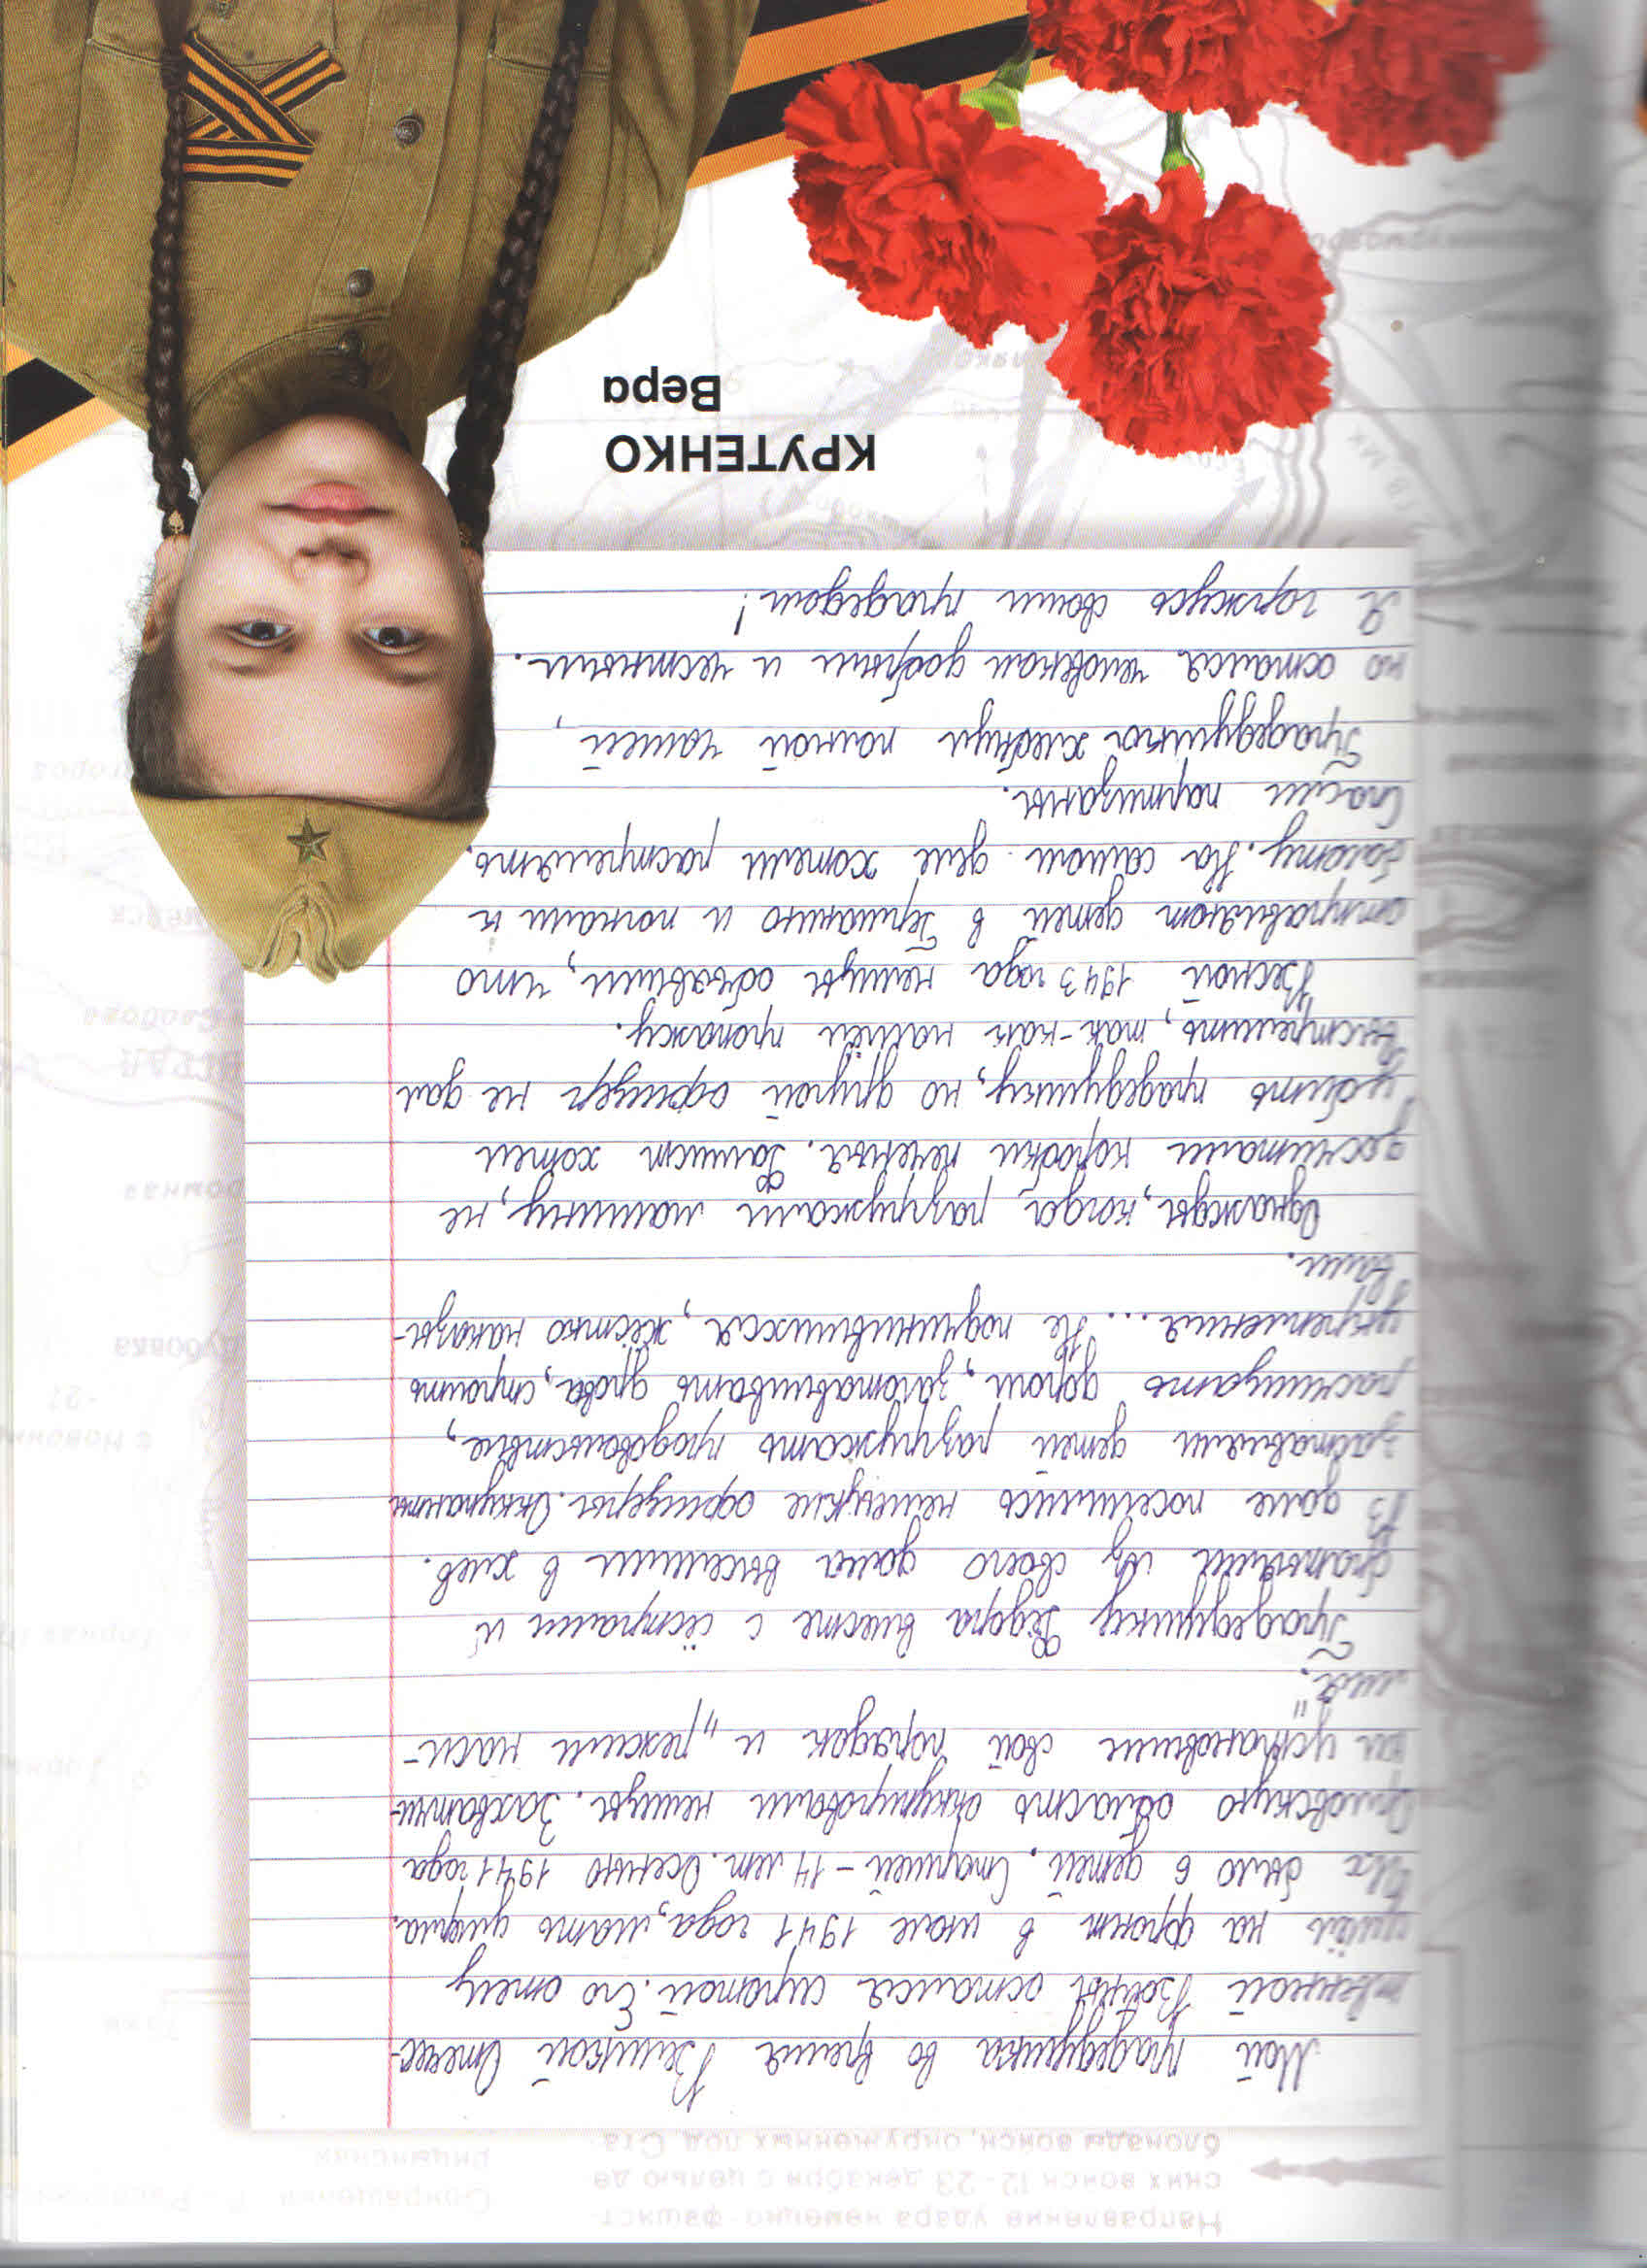 Направление удара немецко-фашист-
ских войск 12-23 декабря с целью де
блокады войск, окружённых под Ста-
Мой прадедушка во время Великой Отечес-
твенной Войны остался сиротой. Его отец
ушёл на фронт в июле 1941 года, мать умерла.
Их было 6 детей. Старшей – 14 лет. Осенью 1941 года
Орловскую область оккупировали немцы. Захватчи-
ки установили свой порядок и „режим наси-
лия".
Прадедушку Фёдора вместе с сёстрами и
братьями из своего дома выселили в хлев.
В доме поселились немецкие офицеры. Оккупанты
заставляли детей разгружать продовольствие,
расчищать дороги, заготавливать дрова, строить
укрепления... Не подчинившихся, жёстко наказы-
вали.
Однажды, когда разгружали машину, не
досчитали коробки печенья. Фашист хотел
убить прадедушку, но другой офицер не дал
выстрелить, так-как нашёл пропажу.
Весной 1943 года немцы объявили, что
отправляют детей в Германию и погнали к
болоту. На самом деле хотели растрелять.
Спасли партизаны.
Прадедушка хлебнул полной чашей,
но остался человеком добрым и честным.
Я горжусь своим прадедом!
КРУТЕНКО
Вера
Дубовка
Слобода